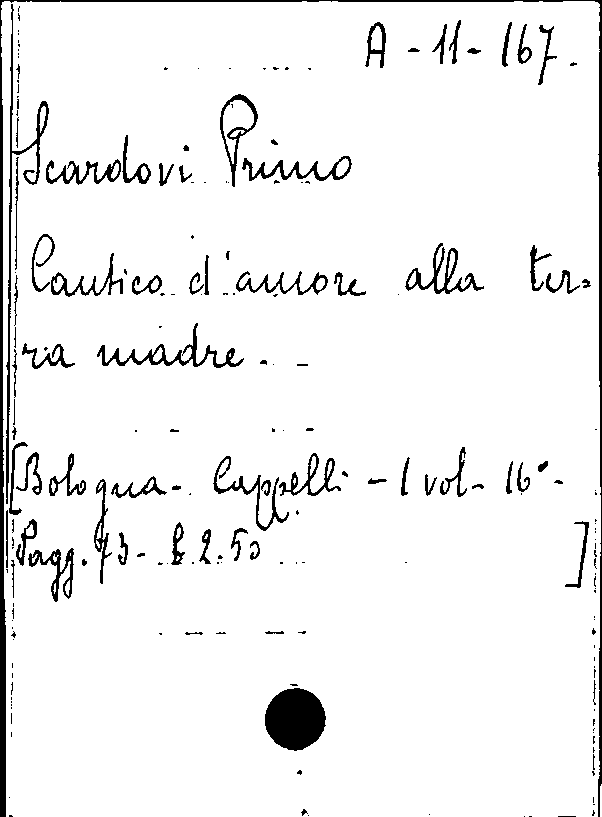 A - 11 - 167.
Scardovi Primo
Cantico d'amore alla ter=
ra madre. -
[Bologna - Cappelli - 1 vol - 16° -
Pagg. 73 - £ 2.50 ]